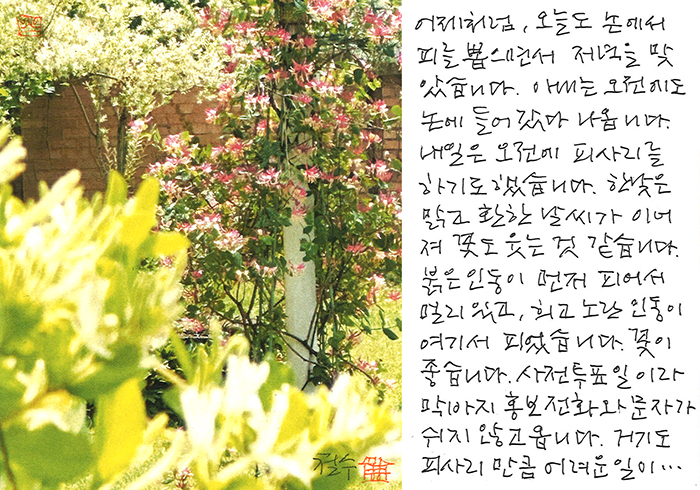 어제처럼, 오늘도 논에서
피를 뽑으면서 저녁을 맞
았습니다. 아내는 오전에도
논에 들어갔다 나옵니다.
내일은 오전에 피사리를
하기로 했습니다. 한낮은
맑고 환한 날씨가 이어
져 꽃도 웃는 것 같습니다.
붉은 인동이 먼저 피어서
멀리 있고, 희고 노란 인동이
여기서 피었습니다. 꽃이
좋습니다. 사전투표일이라
막바지 홍보전화와 문자가
쉬지 않고 옵니다. 거기도
피사리 만큼 어려운 일이…
철수